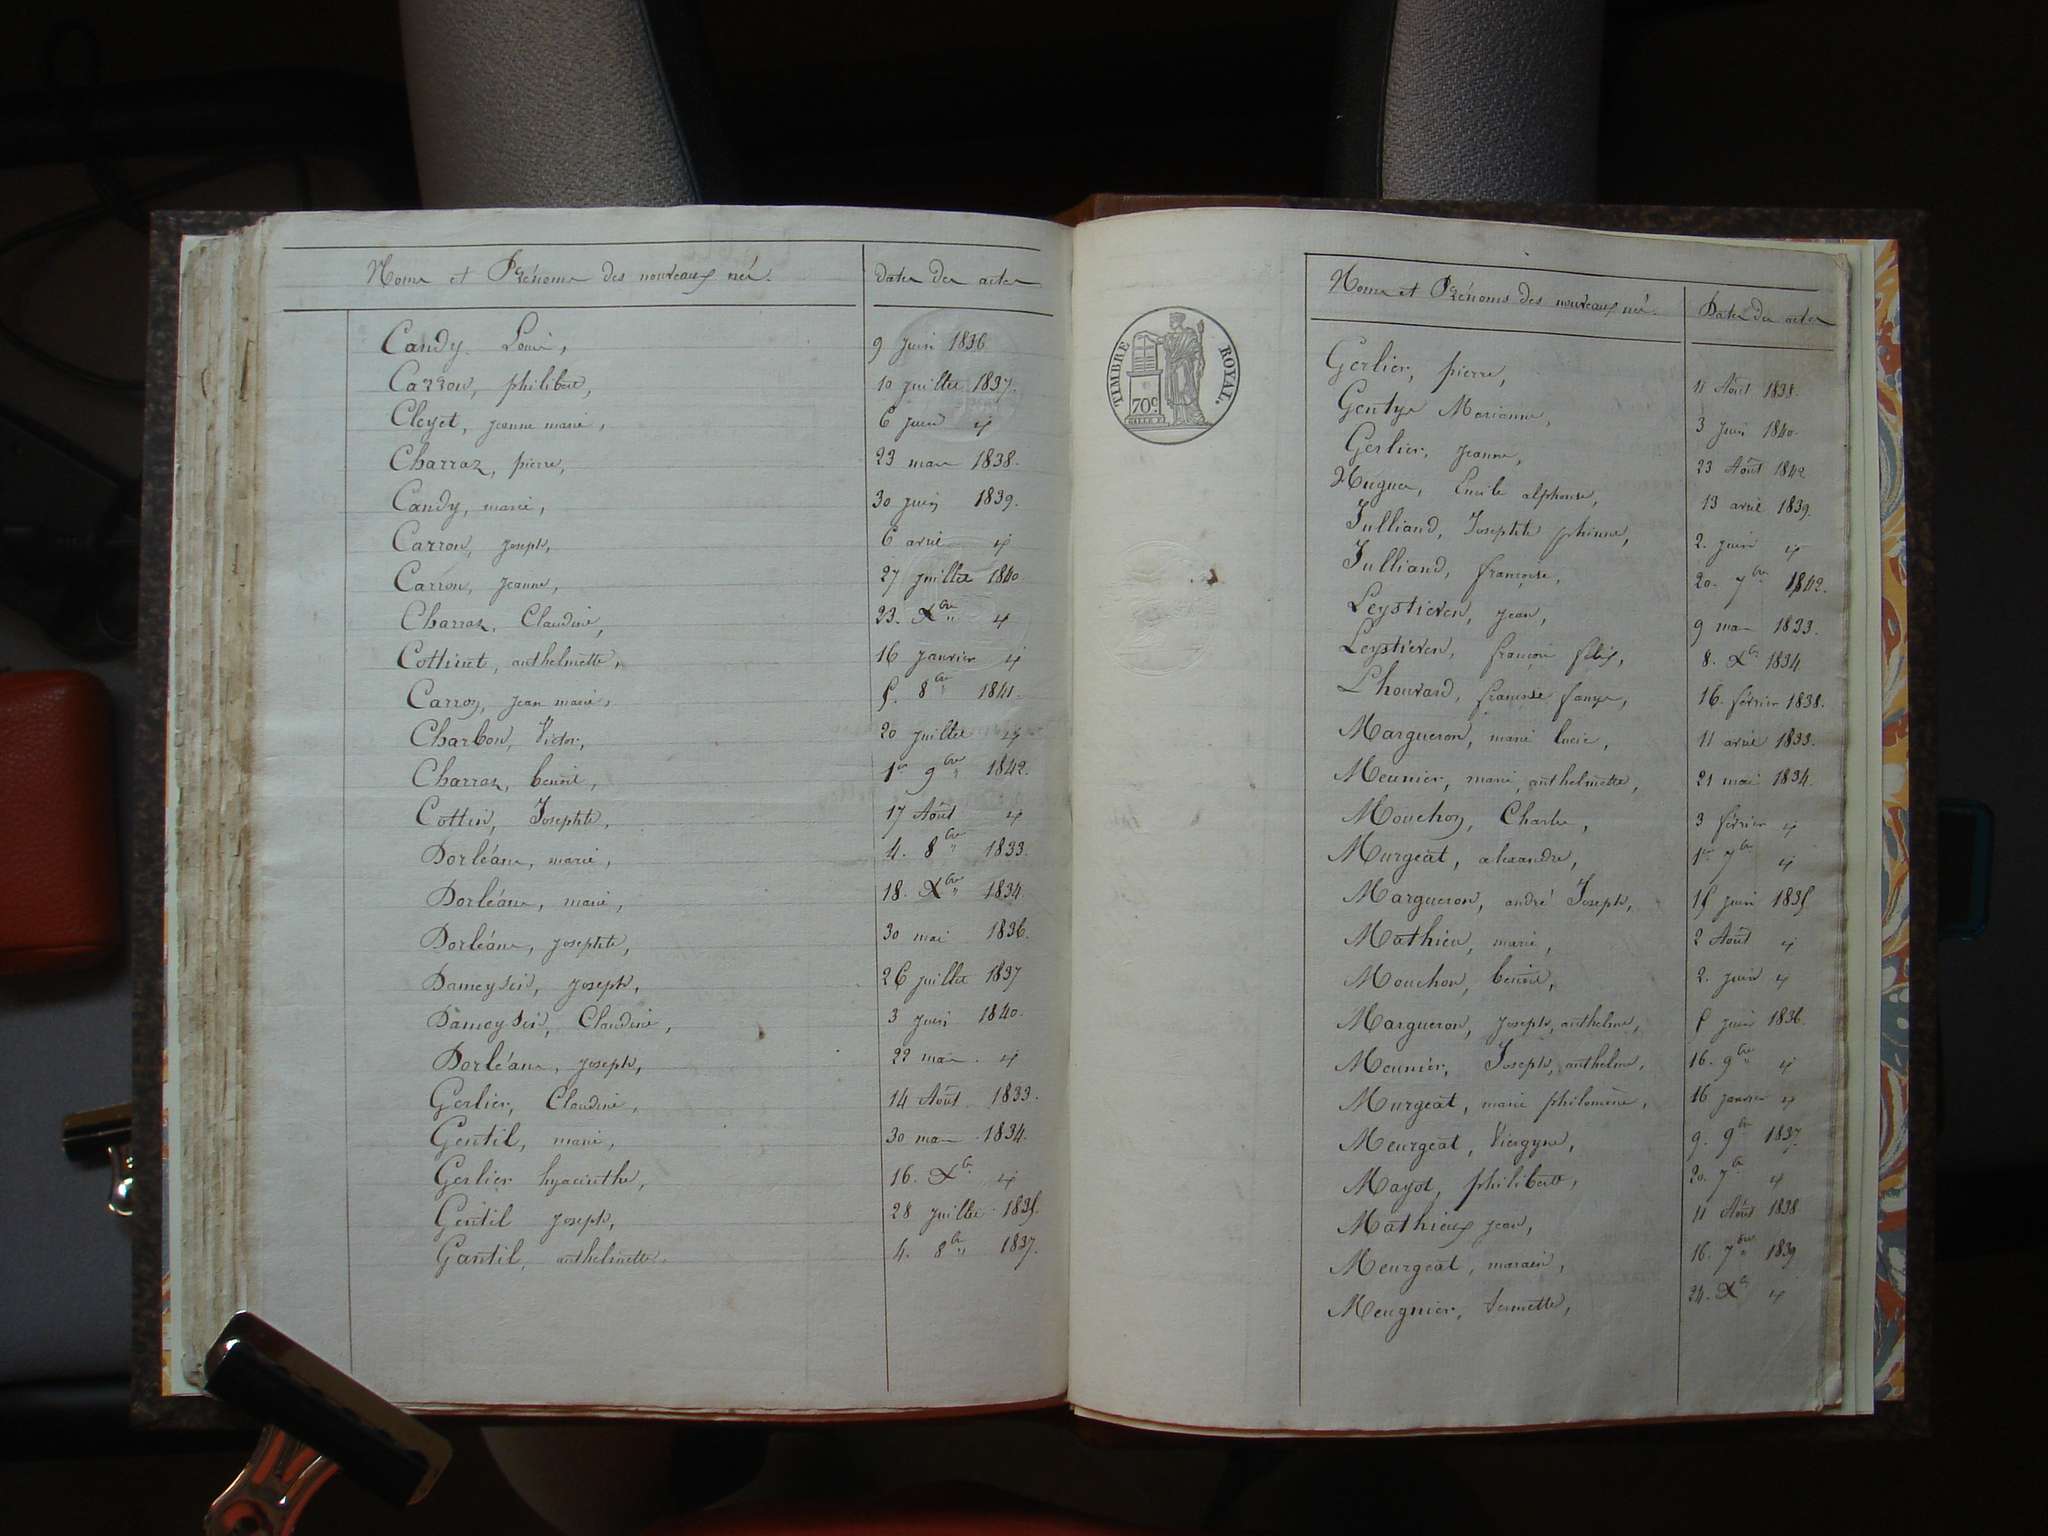 Noms et Prénoms des nouveaux nés. Dates des actes
Candy Louis, 9 juin 1836
Carron, philibert, 10 juillet 1837.
Cleyet, jeanne marie, 6 juin id
Charraz, pierre, 23 mars 1838.
Candy, marie, 30 juin 1839.
Carron, joseph, 6 avril id
Carron, jeanne, 27 juillet 1840
Charraz, Claudine, 23. Xbre id
Cottinet, anthelmette, 16 janvier id
Carron, jean marie, 5. 8bre 1841.
Charbon, Victor, 20 juillet id
Charraz, benoit, 1er 9bre 1842.
Cottin, Josephte, 17 Août id
Dorléans, marie, 4. 8bre 1833.
Dorléans, marie, 18. Xbre 1834.
Dorléans, josephte, 30 mai 1836.
Dameysin, joseph, 26 juillet 1837
Dameysin, Claudine, 3 juin 1840.
Dorléans, joseph, 22 mars id
Gerlier, Claudine, 14 Août 1833.
Gentil, marie, 30 mars 1834.
Gerlier hyacinthe, 16. Xbre id
Gentil joseph, 28 juillet 1835.
Gantil, anthelmette. 4. 8bre 1837.
TIMBRE ROYAL.
70c.
Noms et Prénoms des nouveaux nés. Dates des actes
Gerlier, pierre, 11 Août 1838.
Gentys Marianne, 3 juin 1840.
Gerlier, jeanne, 23 Août 1842
Hugues, Emile alphonse, 13 avril 1839.
Julliand, Josephte phinne, 2. juin id
Julliand, françoise, 20. 7bre 1842.
Leystieven, jean, 9 mars 1833.
Leystieven, françois félix, 8. Xbre 1834
Lhouvard, françoise fanys, 16. février 1838.
Margueron, marie lucie, 11 avril 1833.
Meunier, marie anthelmette, 21 mai 1834.
Mouchon, Charles, 3 février id
Murgeat, alexandre, 1er 7bre id
Margueron, andré Joseph, 15 juin 1835
Mathieu, marie, 2 Août id
Mouchon, benoit, 2. juin id
Margueron, joseph anthelme, 5 juin 1836.
Meunier, Joseph anthelme, 16. 9bre id
Murgeat, marie philomène, 16 janvier id
Meurgeat, Viergyne, 9. 9bre 1837.
Mayot, philiberte, 20. 7bre id
Mathieux jean, 11 Août 1838
Meurgeat, 16. 7bre 1839
Meugnier, 24. Xbre id